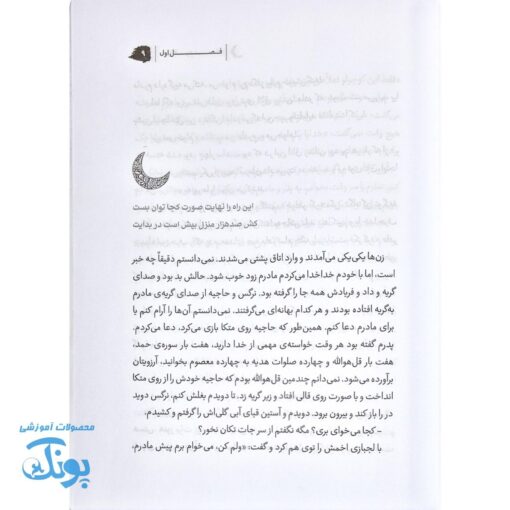 فصل اول | ۹
این راه را نهایت صورت کجا توان بست
کش صدهزار منزل بیش است در بدایت
زن‌ها یکی‌یکی می‌آمدند و وارد اتاق پشتی می‌شدند. نمی‌دانستم دقیقاً چه خبر
است، اما با خودم خداخدا می‌کردم مادرم زود خوب شود. حالش بد بود و صدای
گریه و داد و فریادش همه جا را گرفته بود. نرگس و حاجیه از صدای گریه‌ی مادرم
به‌گریه افتاده بودند و هر کدام بهانه‌ای می‌گرفتند. نمی‌دانستم آن‌ها را آرام کنم یا
برای مادرم دعا کنم. همین‌طور که حاجیه روی متکا بازی می‌کرد، دعا می‌کردم.
پدرم گفته بود هر وقت خواسته‌ی مهمی از خدا دارید، هفت بار سوره‌ی حمد،
هفت بار قل‌هوالله و چهارده صلوات هدیه به چهارده معصوم بخوانید، آرزویتان
برآورده می‌شود. نمی‌دانم چندمین قل‌هوالله بودم که حاجیه خودش را از روی متکا
انداخت و با صورت روی قالی افتاد و زیر گریه زد. تا دویدم بغلش کنم، نرگس دوید
در را باز کند و بیرون برود. دویدم و آستین قبای آبی گلی‌اش را گرفتم و کشیدم.
- کجا می‌خوای بری؟ مگه نگفتم از سر جات تکان نخور؟
با لجبازی اخمش را توی هم کرد و گفت: «ولم کن، می‌خوام برم پیش مادرم.
محصولات آموزشی
پونک